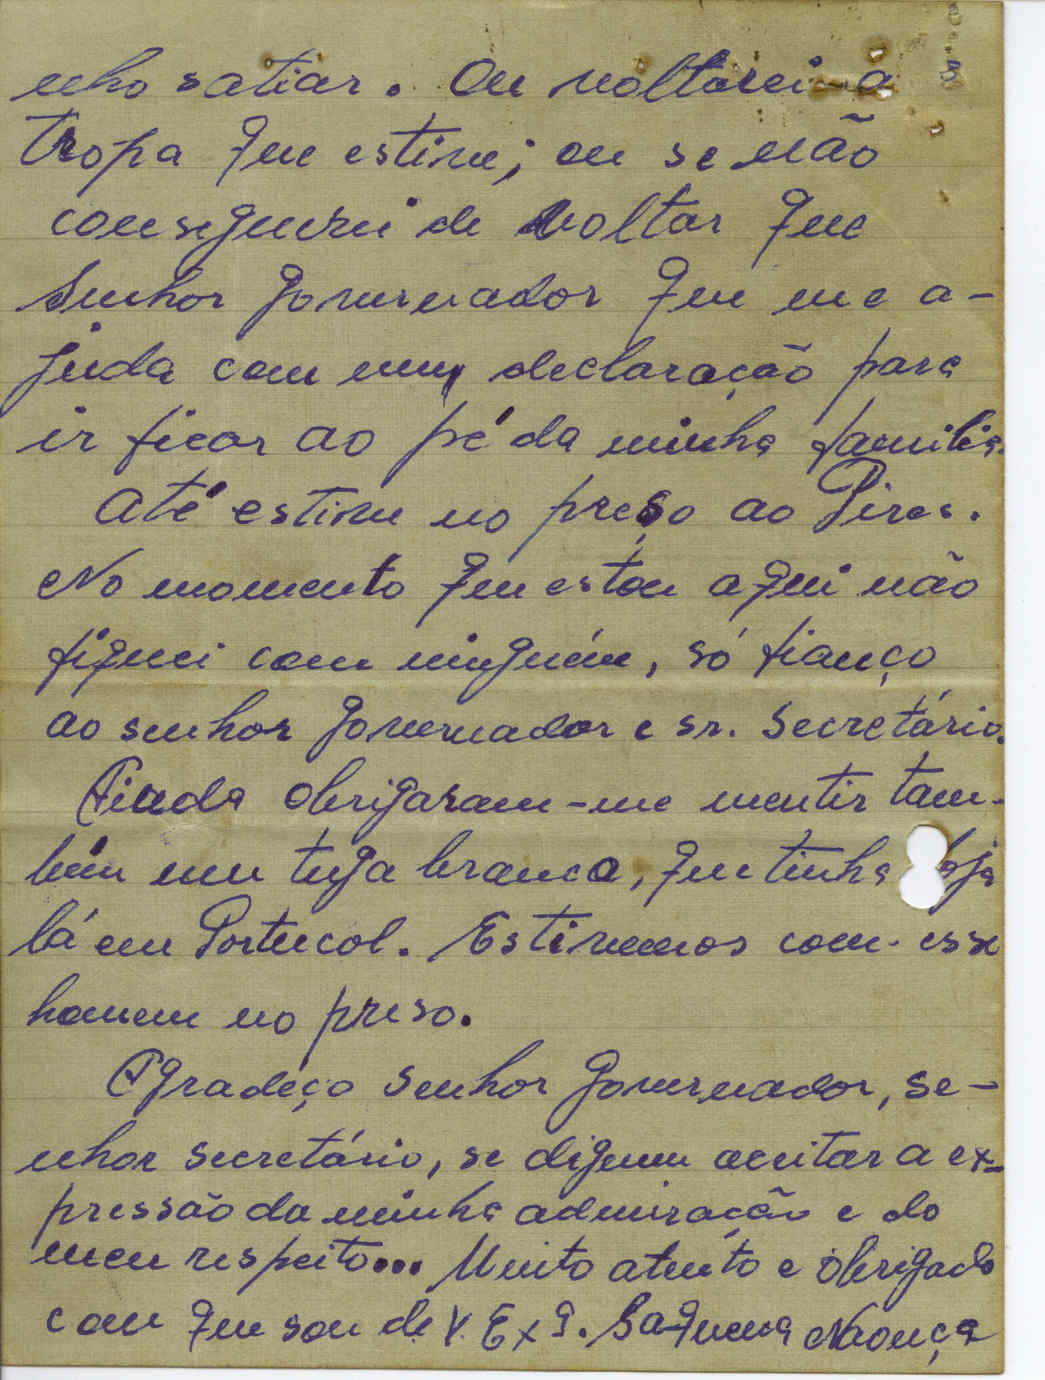 nho satiar. Ou voltarei a
tropa que estive; ou se não
conseguirei de voltar que
Senhor Governador que me a-
juda com um declaração para
ir ficar ao pé da minha familia.
Até estive no preso ao Pires.
No momento que estou aqui não
fiquei com ninguém, só fianço
ao senhor governador e sr. Secretário.
Ainda obrigaram-me mentir tam-
bém um tuga branco, que tinha loja
lá em Portucol. Estivemos com esse
homem no preso.
Agradeço Senhor Governador, Se-
nhor secretário, se dignem aceitar a ex-
pressão da minha admiração e do
meu respeito... Muito atento e obrigado
com que sou de V. Exª.